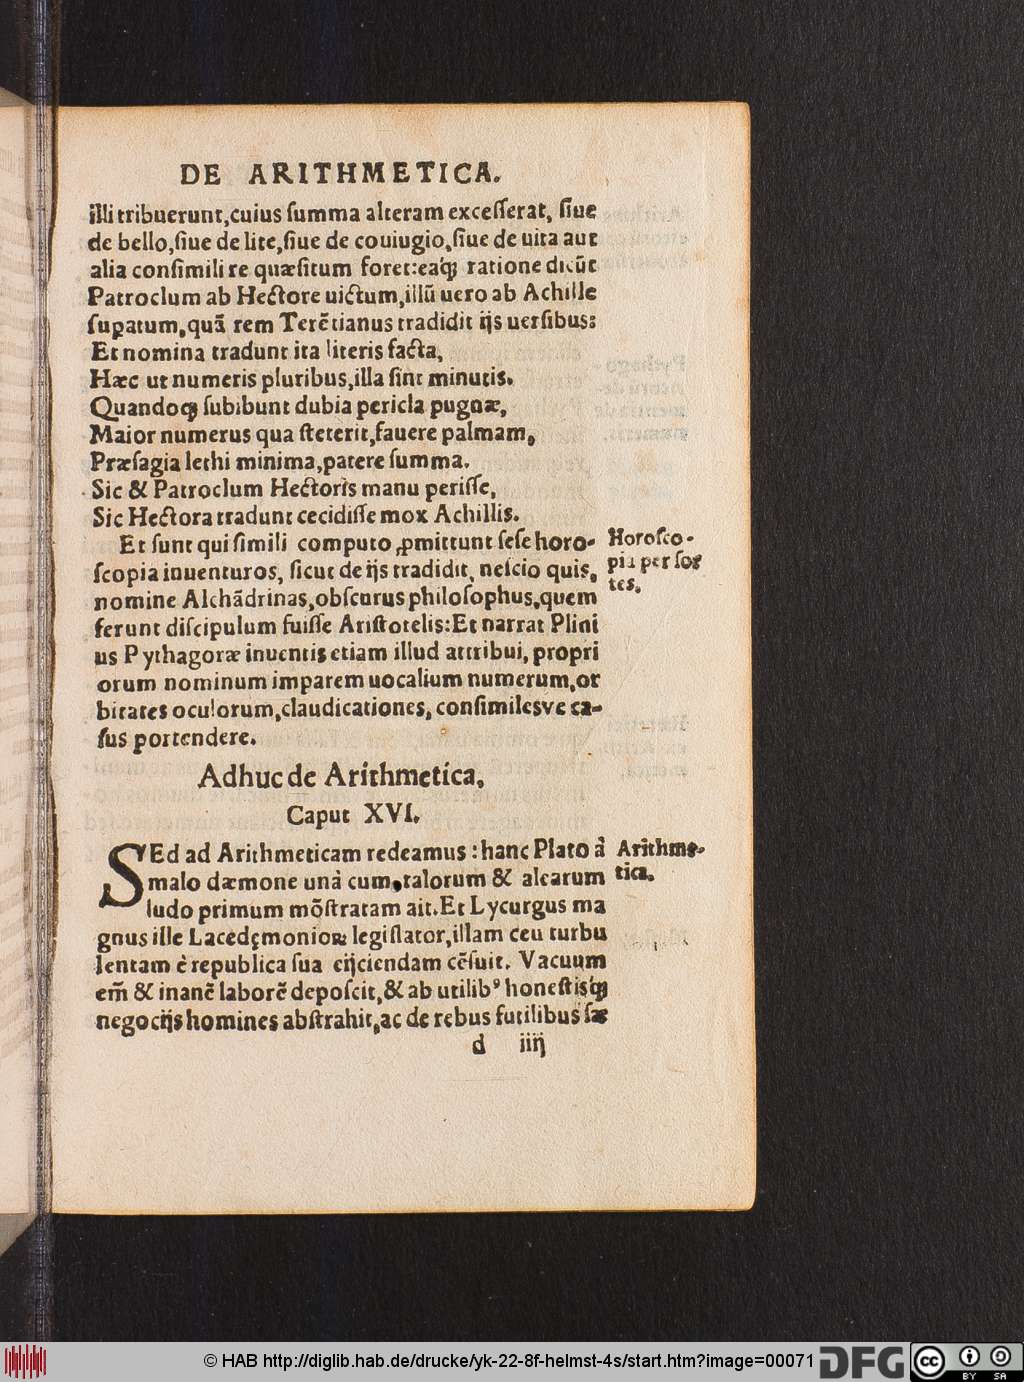 DE ARITHMETICA.
illi tribuerunt, cuius summa alteram excesserat, siue
de bello, siue de lite, siue de couiugio, siue de uita aut
alia consimili re quæsitum foret: eaq́; ratione dicūt
Patroclum ab Hectore uictum, illū uero ab Achille
suꝑatum, quā rem Terētianus tradidit ijs uersibus:
Et nomina tradunt ita literis facta,
Hæc ut numeris pluribus, illa sint minutis.
Quandoq; subibunt dubia pericla pugnæ,
Maior numerus qua steterit, fauere palmam,
Præsagia lethi minima, patere summa.
Sic & Patroclum Hectoris manu perisse,
Sic Hectora tradunt cecidisse mox Achillis.
Et sunt qui simili computo ꝓmittunt sese horo-
scopia inuenturos, sicut de ijs tradidit, nescio quis,
nomine Alchādrinas, obscurus philosophus, quem
ferunt discipulum fuisse Aristotelis: Et narrat Plini
us Pythagoræ inuentis etiam illud attribui, propri
orum nominum imparem uocalium numerum, or
bitates oculorum, claudicationes, consimilesve ca-
sus portendere.
Horosco-
pia per sor
tes.
Adhuc de Arithmetica,
Caput XVI.
SEd ad Arithmeticam redeamus: hanc Plato à
malo dæmone unà cum, talorum & alearum
ludo primum mōstratam ait. Et Lycurgus ma
gnus ille Lacedęmonioꝝ legislator, illam ceu turbu
lentam è republica sua eijciendam cēsuit. Vacuum
em̄ & inanē laborē deposcit, & ab utilibꝰ honestisq́;
negocijs homines abstrahit, ac de rebus futilibus sæ
Arithme-
tica.
d iiij
© HAB http://diglib.hab.de/drucke/yk-22-8f-helmst-4s/start.htm?image=00071
DFG
cc
BY SA